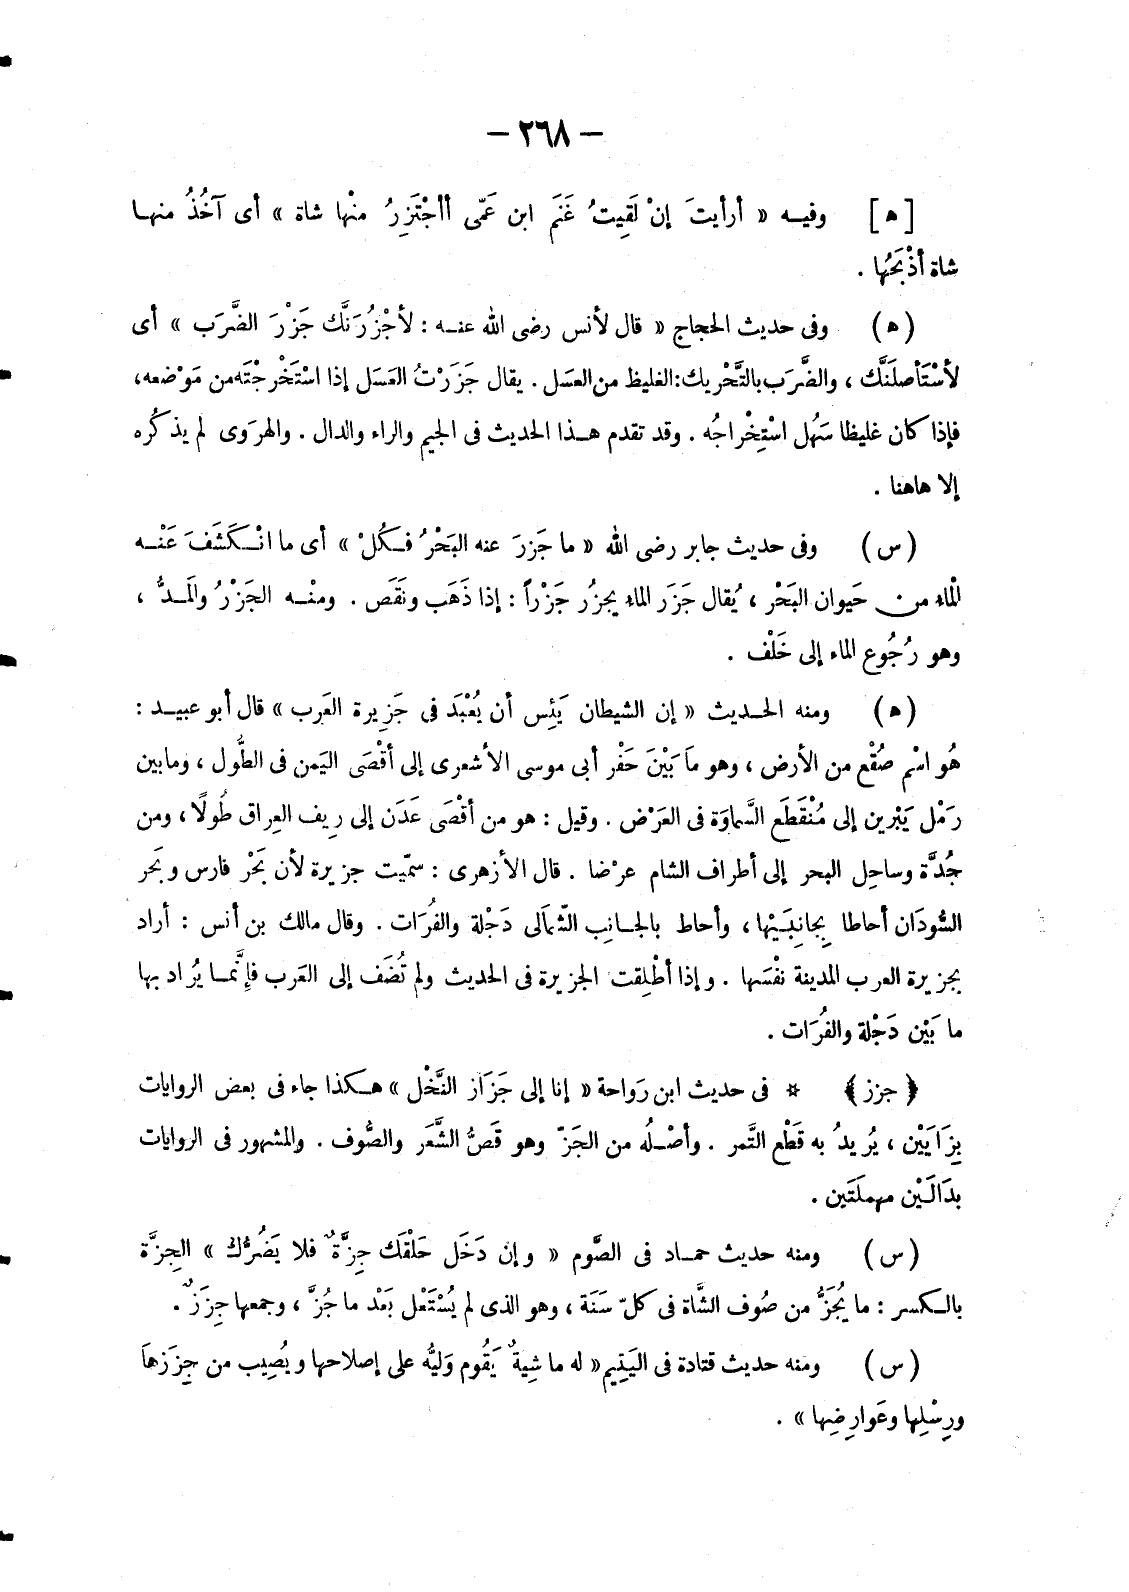 — ٢٦٨ —
[ ه ] وفيـه « أرأيتَ إنْ لَقِيتُ غَنَم ابن عَمّى أأجْتَزِرُ منْها شاة » أى آخُذُ منهـا
شاة أذْبَحُها .
( ه ) وفى حديث الحجاج « قال لأنس رضى الله عنـه : لأجْزُرَنَّك جَزْرَ الضَّرَب » أى
لأسْتَأصلَنَّك ، والضَّرَب بالتَّحْريك: الغليظ من العسَل . يقال جَزَرْتُ العَسَل إذا اسْتَخْرجْتَه من مَوْضعه،
فإذا كان غليظا سَهُل اسْتِخْراجُه . وقد تقدم هـذا الحديث فى الجيم والراء والدال . والهرَوى لم يذكُره
إلا هاهنا .
( س ) وفى حديث جابر رضى الله « ما جَزرَ عنه البَحْرُ فـكُلْ » أى ما انْـكَشَفَ عَنْـه
الْماء من حَيوان البَحْر ، يُقال جَزَر الماء يجزُر جَزْراً : إذا ذَهَب ونَقَص . ومنْـه الجَزْرُ والَمـدُّ ،
وهو رُجُوع الماء إلى خَلْف .
( ه ) ومنه الحـديث « إن الشيطان يَئِس أن يُعْبَدَ فى جَزِيرة العَرب » قال أبو عبيـد :
هُو اسْم صُقْع من الأرض ، وهو مَا بَيْنَ حَفْر أبى موسى الأشعرى إلى أقْصَى اليَمن فى الطُّول ، ومابين
رَمْل يَبْرين إلى مُنْقَطَع السَّماوَة فى العَرْض . وقيل : هو من أقْصَى عَدَن إلى رِيف العِراق طُولًا ، ومن
جُدَّة وساحِل البحر إلى أطراف الشام عرْضا . قال الأزهرى : سمّيت جزيرة لأن بَحْر فارس وبَحر
السُّودَان أحاطا بِجانِبَـيْها ، وأحاط بالجـانِب الشّمَالى دَجْلة والفُرَات . وقال مالك بن أنس : أراد
بجزيرة العرب المدينة نفْسَها . وإذا أطْلِقت الجزيرة فى الحديث ولم تُضَف إلى العَرب فإِنَّمـا يُرَاد بها
ما بَيْن دَجْلة والفُرَات .
﴿ جزز ﴾ * فى حديث ابن رَواحة « إنا إلى جَزَاز النَّخْل » هـكذا جاء فى بعض الروايات
بِزَايَيْن ، يُريدُ به قَطْع التَّمر . وأصْـلُه من الجَزّ وهو قَصُّ الشَّعَر والصُّوف . والمشهور فى الروايات
بدَالَـيْن مهملَتَين .
( س ) ومنه حديث حمـاد فى الصَّوم « وإنْ دَخَل حَلْقَك جِزَّةٌ فلا يَضُرُّكَ » الجِزَّة
بالـكسر : ما يُجَزُّ من صُوف الشَّاة فى كلّ سَنَة ، وهو الذى لم يُسْتَعْل بَعْد ما جُزَّ ، وجمعها جِزَزٌ .
( س ) ومنه حديث قتادة فى اليَتِيم « له ما شِيةٌ يَقُوم وَليُّه على إصلاحها ويُصِيب من جِزَزهَا
ورِسْلِها وعَوارِضِها » .